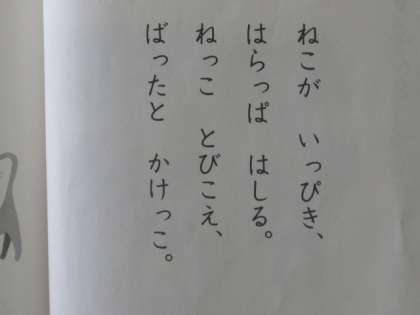 ねこが　いっぴき、
はらっぱ　はしる。
ねっこ　とびこえ、
ばったと　かけっこ。